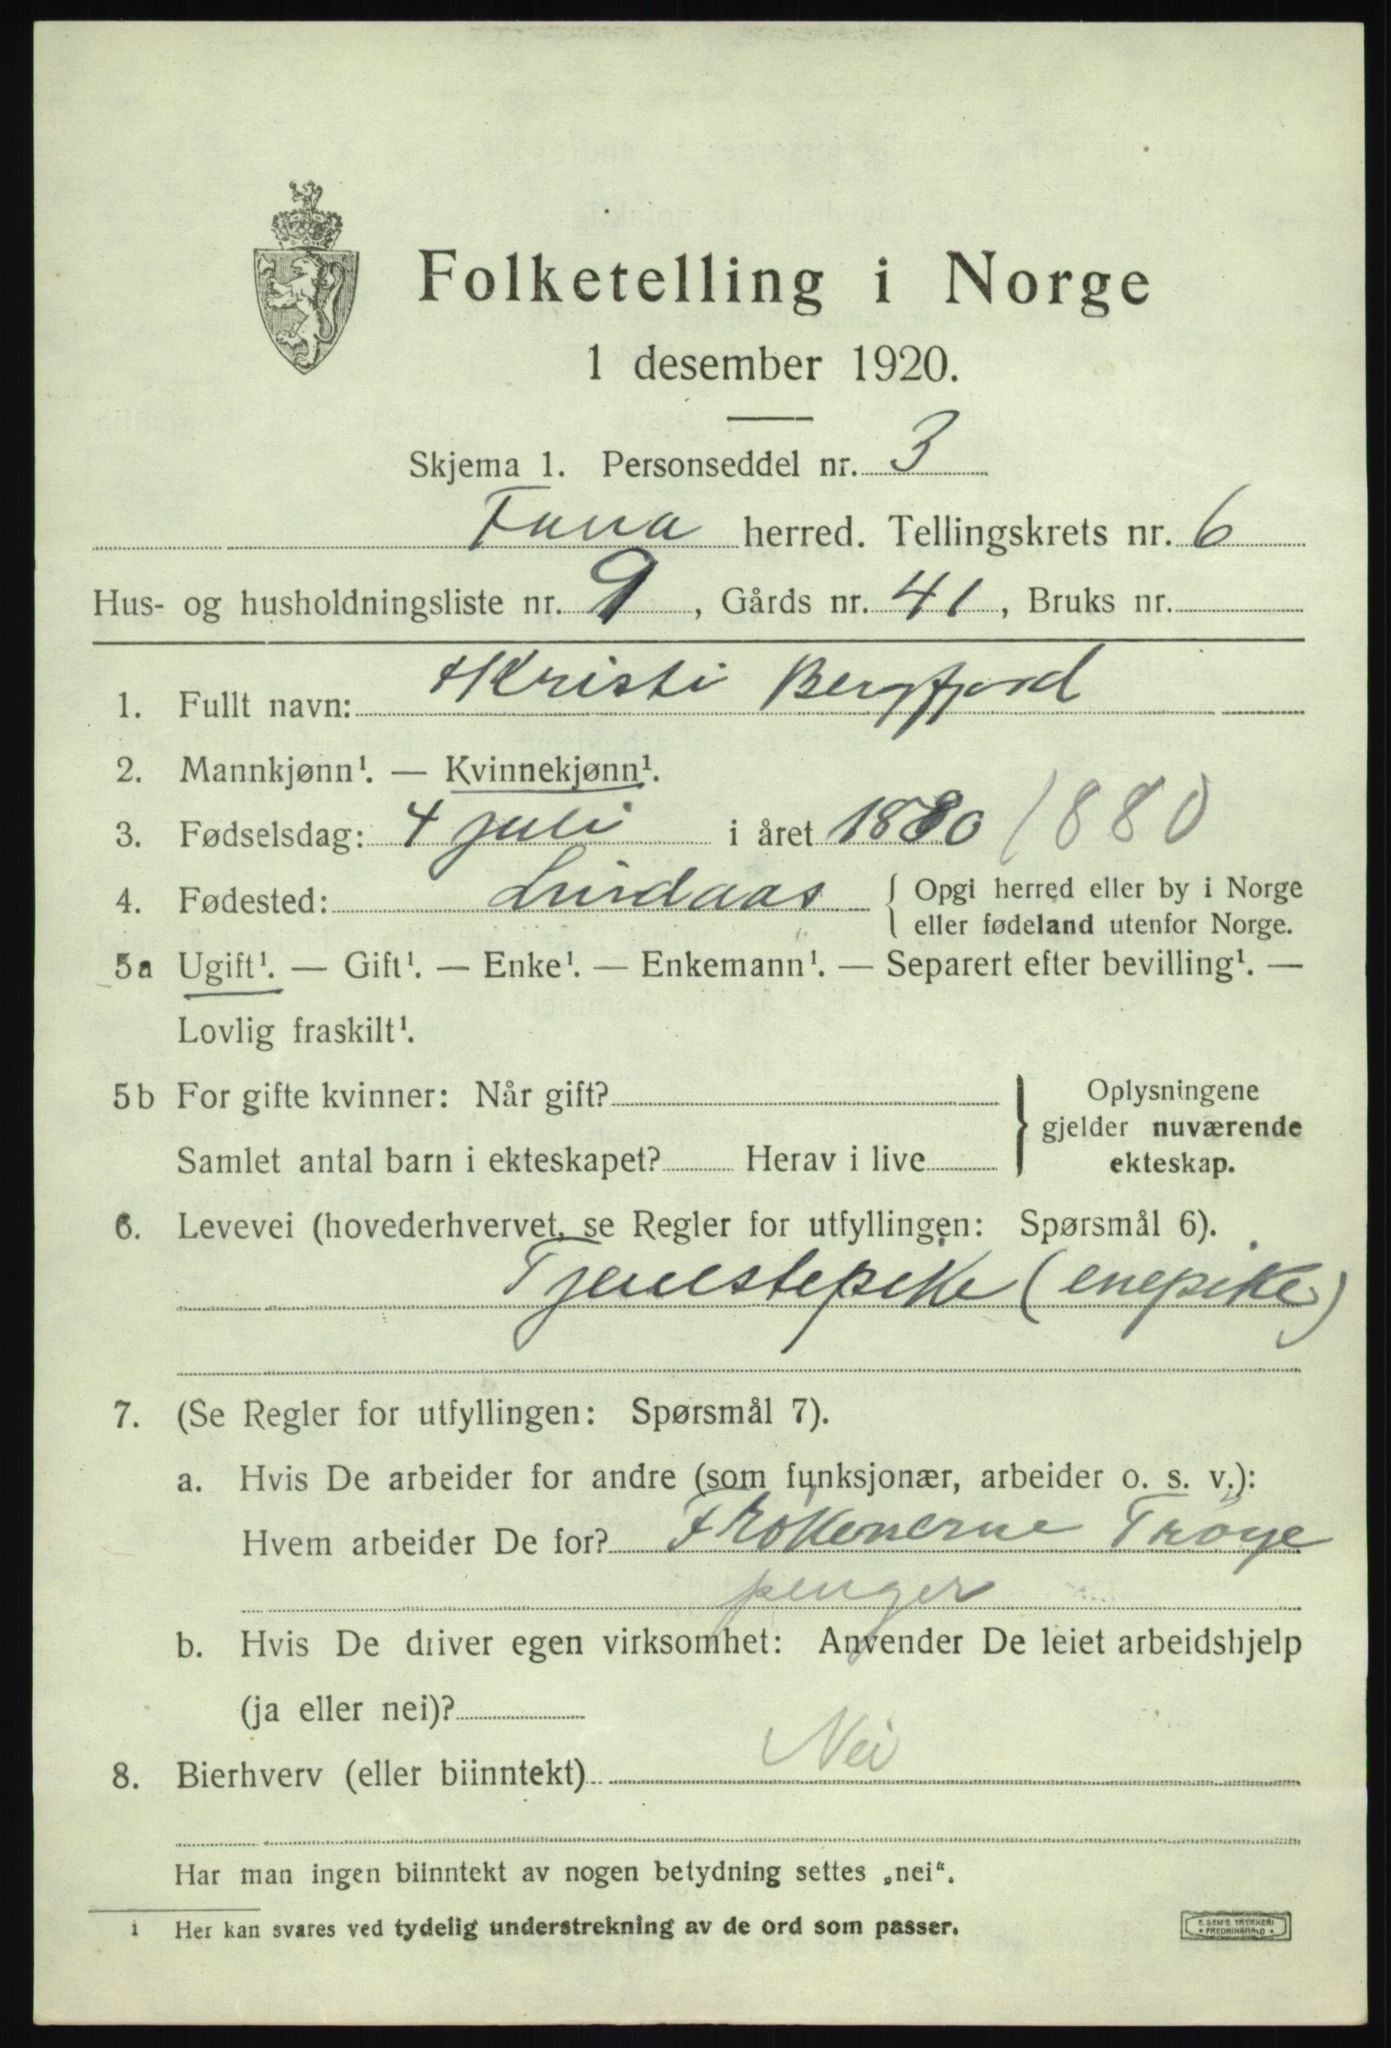 Folketelling i Norge
1 desember 1920.
Skjema 1. Personseddel nr. 3
Fana herred. Tellingskrets nr. 6
Hus- og husholdningsliste nr. 9, Gårds nr. 41, Bruks nr.
1. Fullt navn: Kristi Bergfjord
2. Mannkjønn¹. — Kvinnekjønn¹.
3. Fødselsdag: 4 juli i året 1880 1880
4. Fødested: Lindaas { Opgi herred eller by i Norge
eller fødeland utenfor Norge.
5a Ugift¹. — Gift¹. — Enke¹. — Enkemann¹. — Separert efter bevilling¹. —
Lovlig fraskilt¹.
5b For gifte kvinner: Når gift? } Oplysningene
gjelder nuværende
Samlet antal barn i ekteskapet? Herav i live ekteskap.
6. Levevei (hovederhvervet, se Regler for utfyllingen: Spørsmål 6).
Tjenestepike (enepike)
7. (Se Regler for utfyllingen: Spørsmål 7).
a. Hvis De arbeider for andre (som funksjonær, arbeider o. s. v.):
Hvem arbeider De for? Frøkenerne Trøye
penger
b. Hvis De driver egen virksomhet: Anvender De leiet arbeidshjelp
(ja eller nei)?
8. Bierhverv (eller biinntekt) Nei
Har man ingen biinntekt av nogen betydning settes „nei“.
1 Her kan svares ved tydelig understrekning av de ord som passer.
E. SEM'S TRYKKERI
FREDRIKSHALD